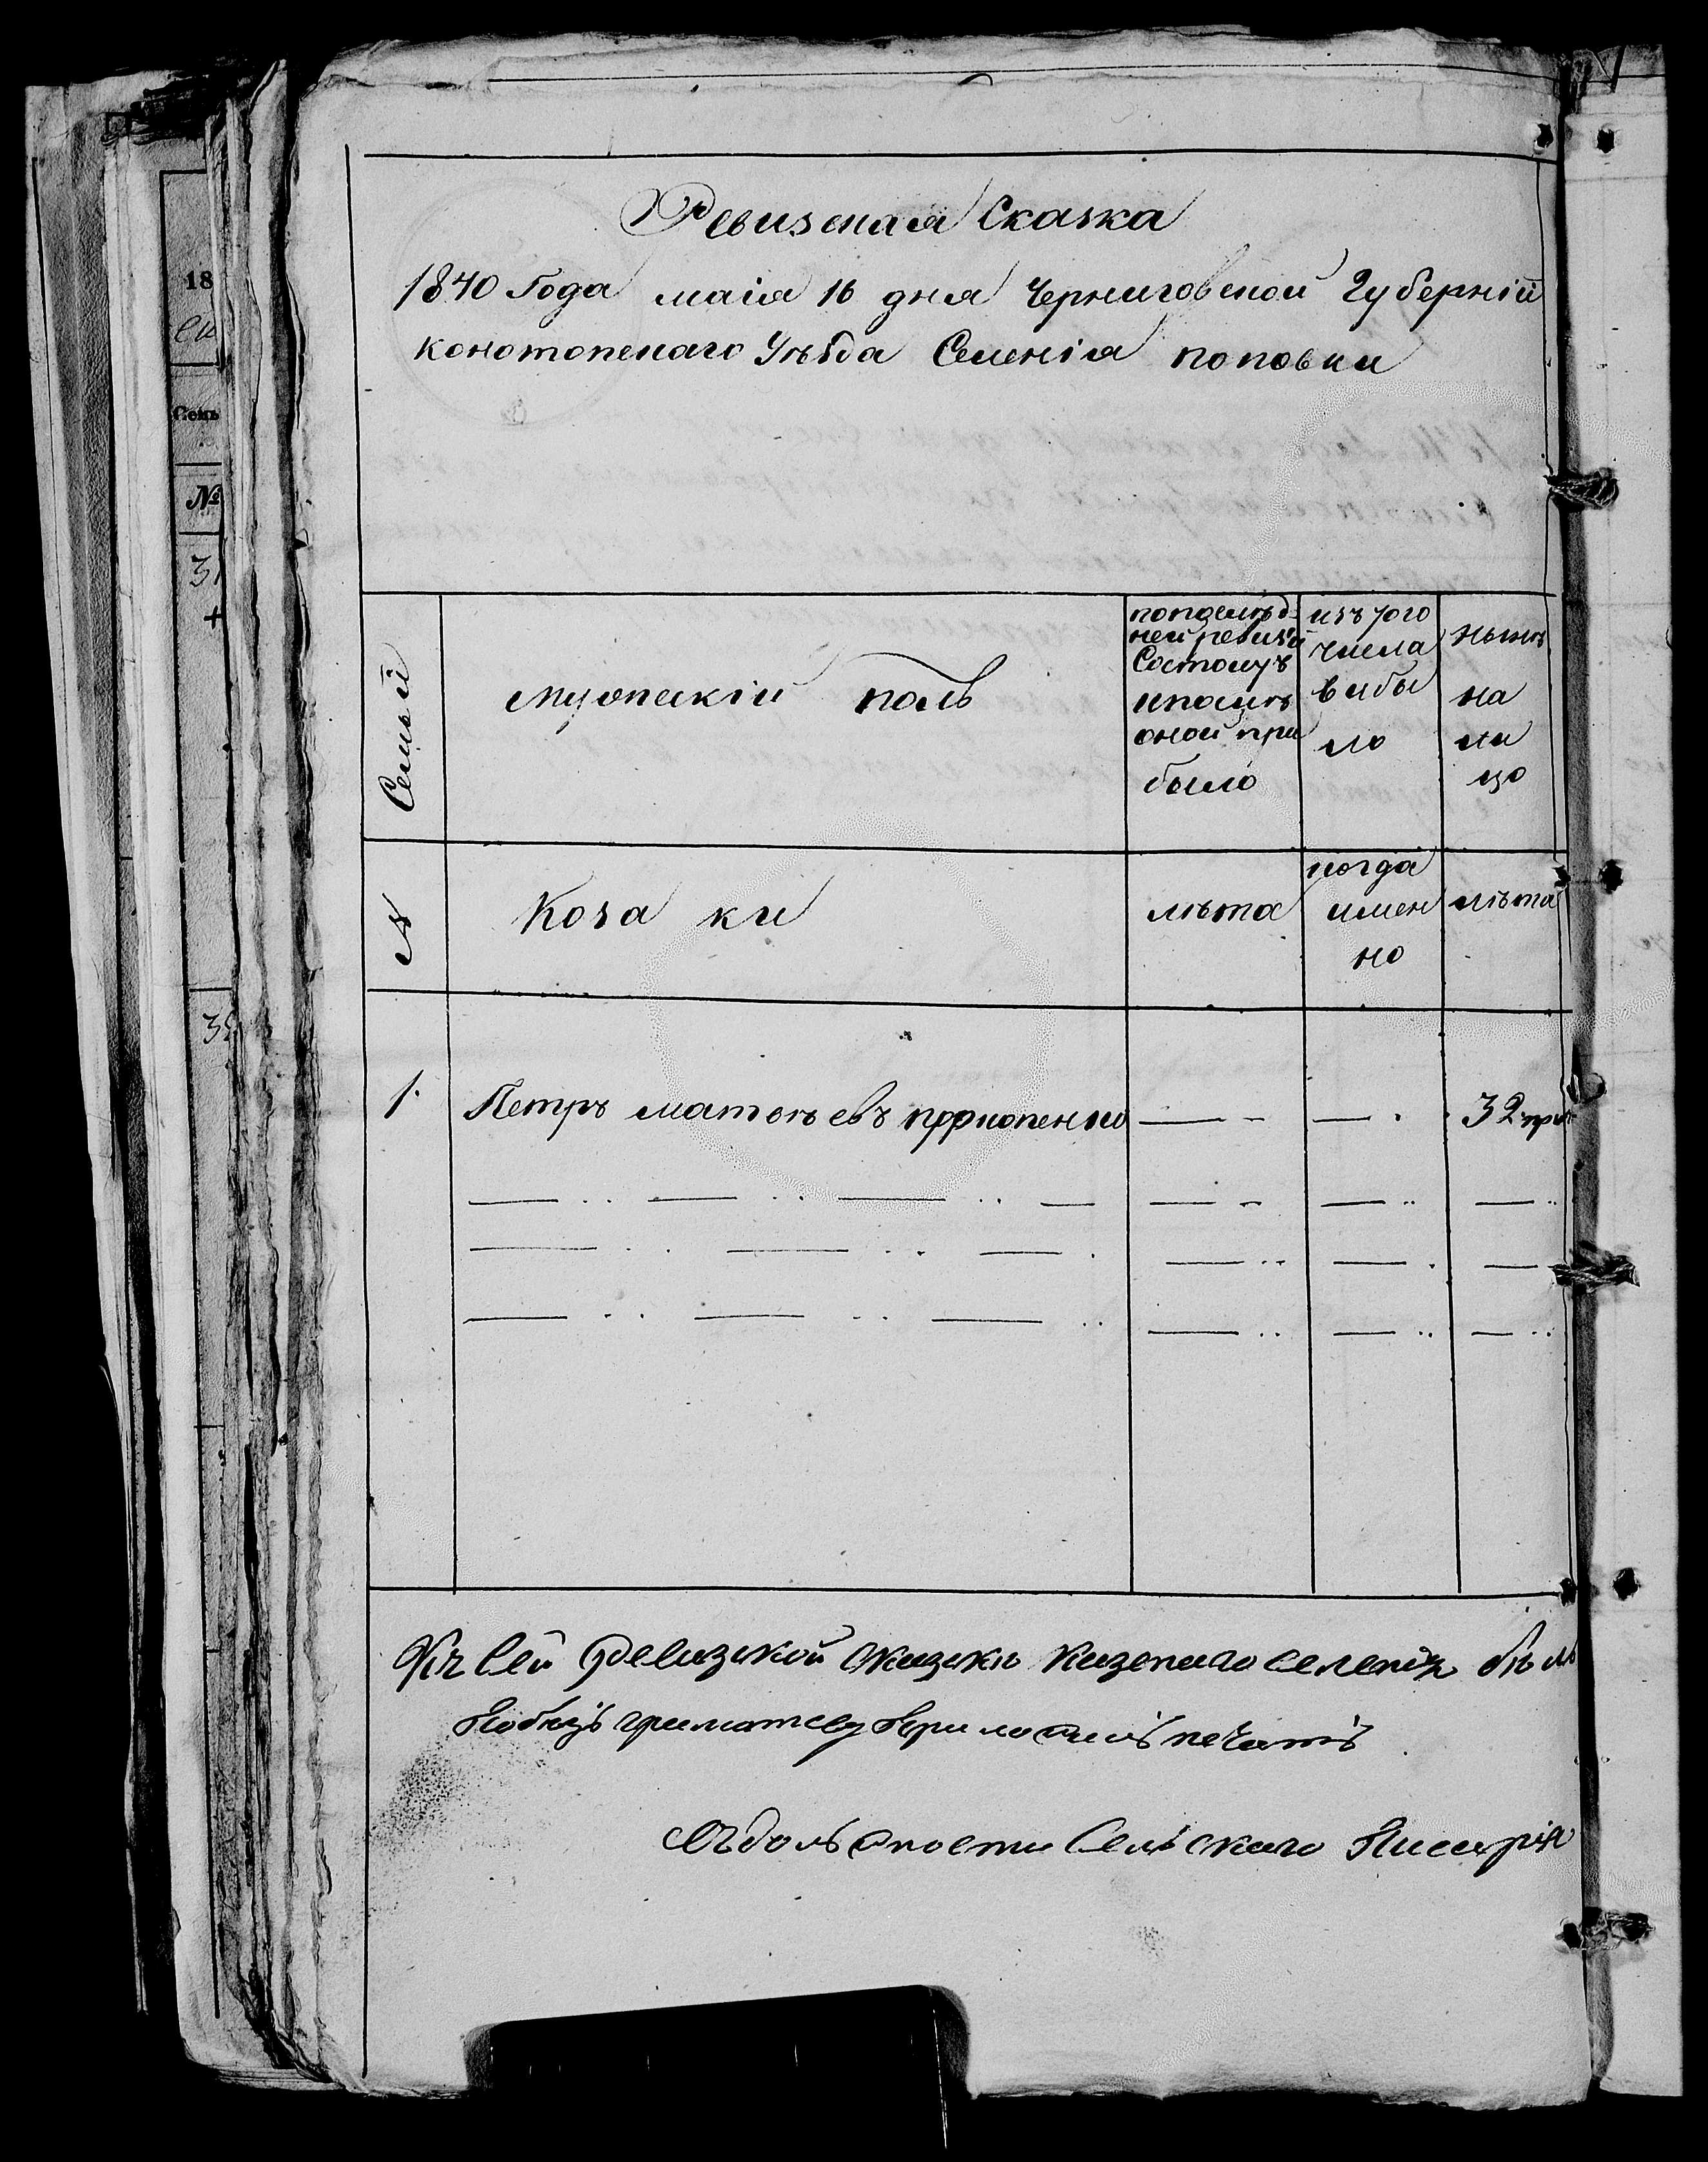 Ревизская Сказка
1840 Года маія 16 дня Черниговской Губерній
конотопскаго Уѣзда Селенія поповки
Семьй
мужескій полъ
попослѣд-
ней ревизій
Состоитъ
ипослѣ
оной при
было
изъ того
числа
выбы
ло
нынѣ
на
ли
цо
№
Коза ки
лѣта
когда
имен
но
лѣта
1.
Петръ матвѣевъ прокопенко
32
Къ Сей Ревизской Сказкѣ Казенаго селенія
грамати приложилъ печать
должности Сельскаго Писаря
18
Семь
№